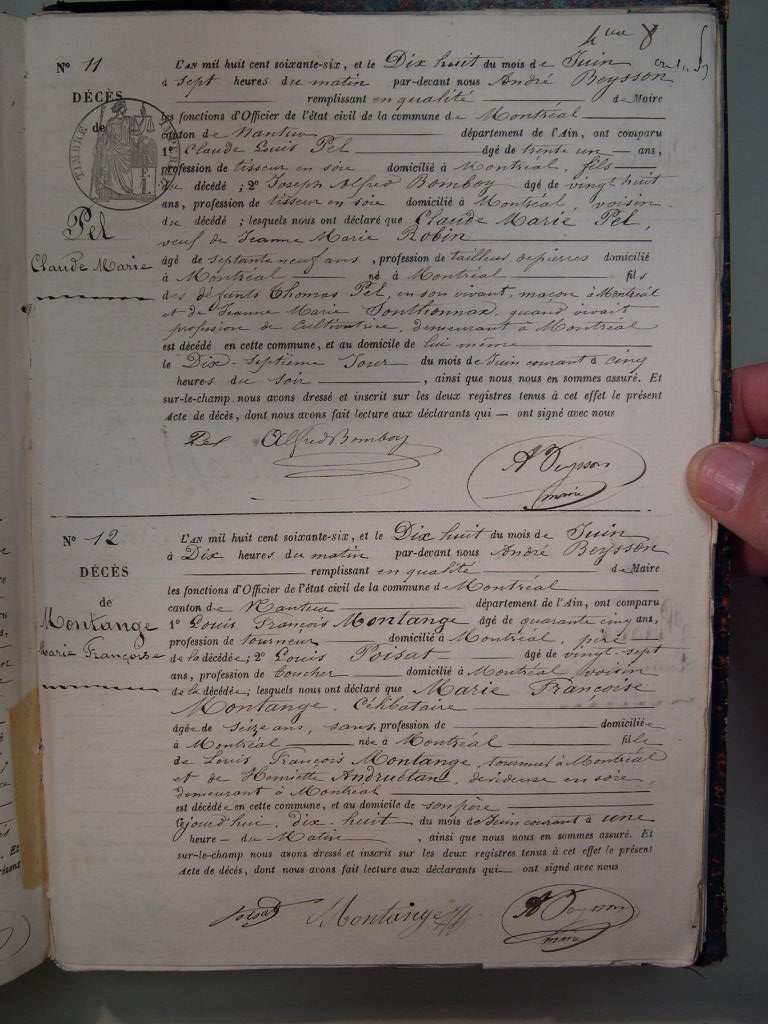 8
Nº 11
DÉCÈS
de
Pel
Claude Marie
TIMBRE
L'AN mil huit cent soixante-six, et le Dix huit du mois de Juin
à sept heures du matin par-devant nous André Beysson
remplissant en qualité de Maire
les fonctions d'Officier de l'état civil de la commune de Montréal
canton de Nantua département de l'Ain, ont comparu
1º Claude Louis Pel âgé de trente un ans,
profession de tisseur en soie domicilié à Montréal, fils
du décédé ; 2º Joseph Alfred Bomboy âgé de vingt huit
ans, profession de tisseur en soie domicilié à Montréal, voisin
du décédé ; lesquels nous ont déclaré que Claude Marie Pel,
veuf de Jeanne Marie Robin
âgé de septante neuf ans, profession de tailleur de pierres domicilié
à Montréal né à Montréal fils
des défunts Thomas Pel, en son vivant, maçon à Montréal
et de Jeanne Marie Sonthonnax, quand vivait
profession de Cultivatrice, demeurant à Montréal
est décédé en cette commune, et au domicile de lui même
le Dix-septième Jour du mois de Juin courant à cinq
heures du soir, ainsi que nous nous en sommes assuré. Et
sur-le-champ nous avons dressé et inscrit sur les deux registres tenus à cet effet le présent
Acte de décès, dont nous avons fait lecture aux déclarants qui — ont signé avec nous
Pel Alfred Bomboy A Beysson
maire
Nº 12
DÉCÈS
de
Montange
Marie Françoise
L'AN mil huit cent soixante-six, et le Dix huit du mois de Juin
à Dix heures du matin par-devant nous André Beysson
remplissant en qualité de Maire
les fonctions d'Officier de l'état civil de la commune d Montréal
canton de Nantua département de l'Ain, ont comparu
1º Louis François Montange âgé de quarante cinq ans,
profession de tourneur domicilié à Montréal, père
de la décédée ; 2º Louis Poisat âgé de vingt-sept
ans, profession de boucher domicilié à Montréal voisin
de la décédée ; lesquels nous ont déclaré que Marie Françoise
Montange, Célibataire
âgée de seize ans, sans profession de domiciliée
à Montréal née à Montréal fille
de Louis François Montange, tourneur à Montréal
et de Henriette Andruétan, dévideuse en soie,
demeurant à Montréal
est décédée en cette commune, et au domicile de son père
cejourd'hui, dix-huit du mois de Juin courant à une
heure du Matin, ainsi que nous nous en sommes assuré. Et
sur-le-champ nous avons dressé et inscrit sur les deux registres tenus à cet effet le présent
Acte de décès, dont nous avons fait lecture aux déclarants qui — ont signé avec nous
Poisat Montange A Beysson
maire